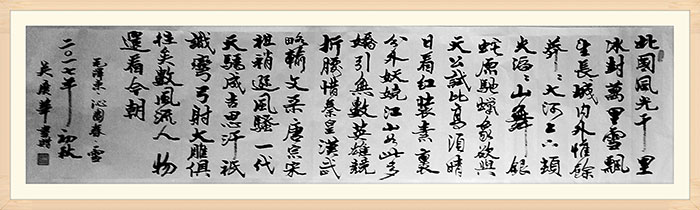 北国風光千里
冰封萬里雪飄
望長城内外惟餘
莽ミ大河上下頓
失滔ミ山舞銀
蛇原馳蠟象欲與
天公試比高須晴
日看紅装素裹
分外妖嬈江山如此多
嬌引無數英雄競
折腰惜秦皇漢武
略輸文采唐宗宋
祖稍遜風騷一代
天驕成吉思汗祇
識彎弓射大雕俱
往矣數風流人物
還看今朝
毛澤東沁園春·雪
二〇一七年初秋
華書